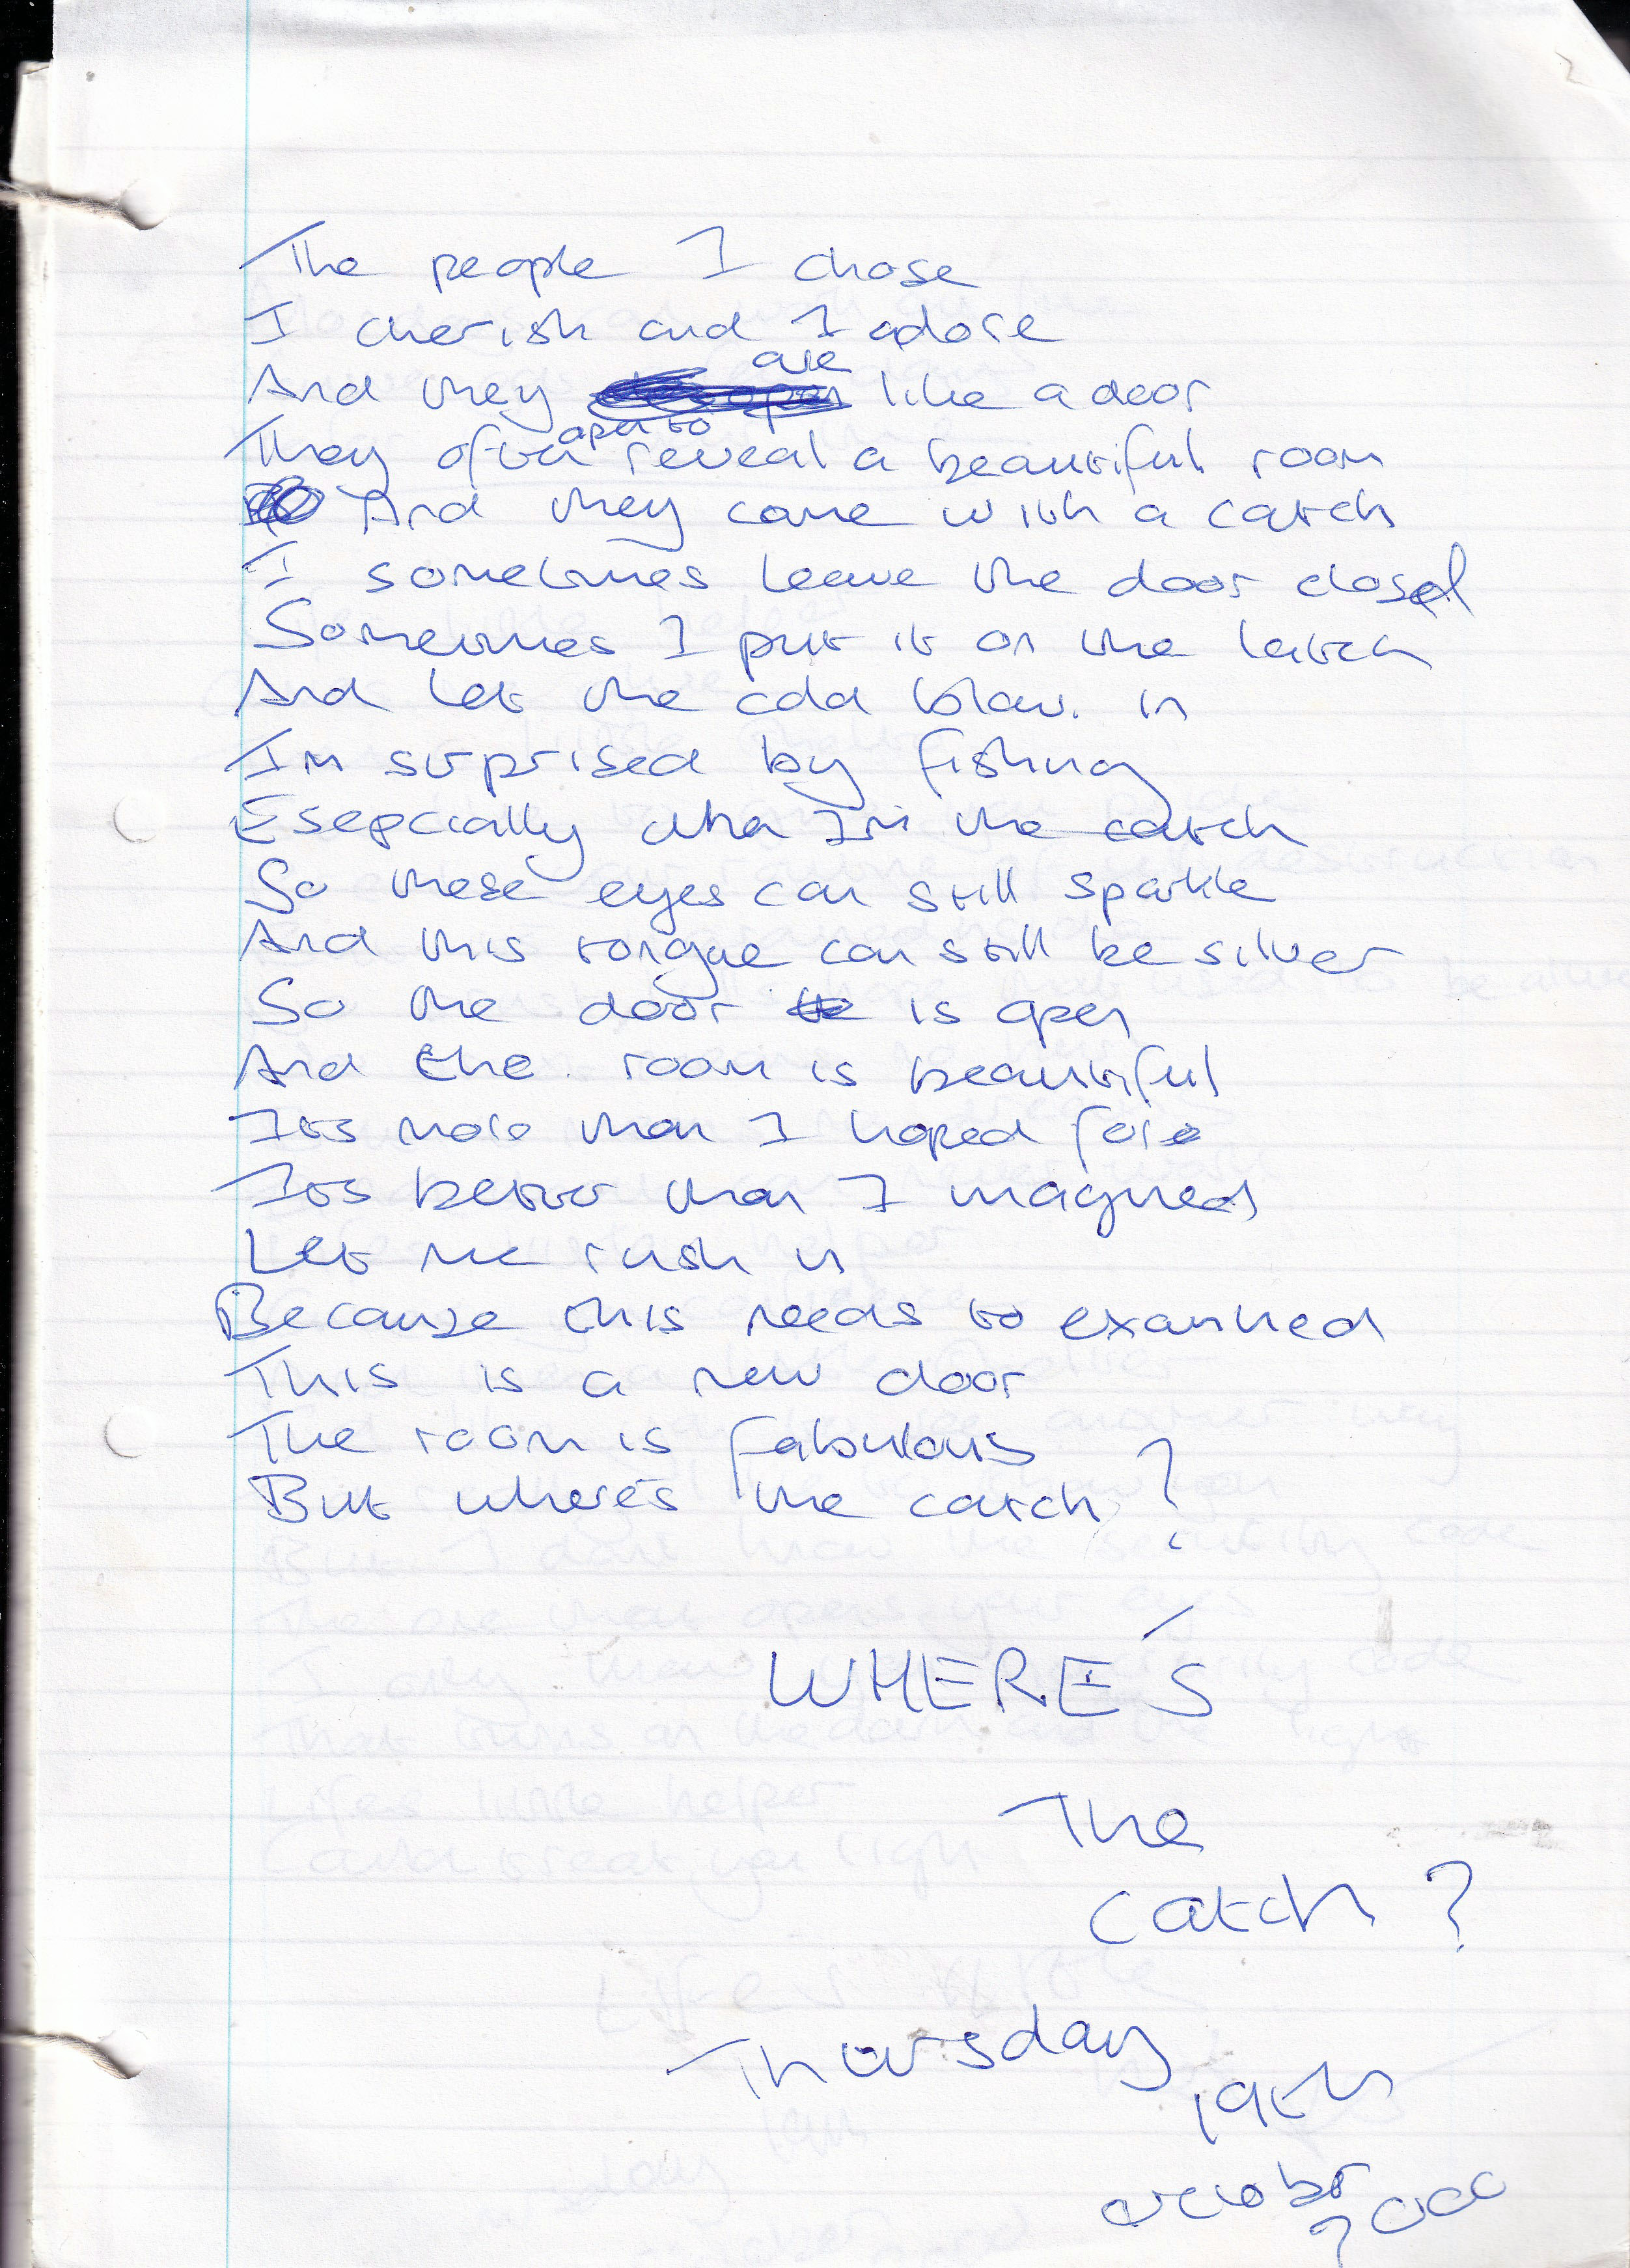 The people I chose
I cherish and I adore
And they are like a door
They often open to reveal a beautiful room
And they come with a catch
I sometimes leave the door closed
Sometimes I put it on the latch
And let the cold blow in
Im surprised by fishing
Esepcially when I'm the catch
So these eyes can still sparkle
And this tongue can still be silver
So the door is open
And the room is beautiful
Its more than I hoped for
Its better than I imagined
Let me rush in
Because this needs to examined
This is a new door
The room is fabulous
But where's the catch?
WHERE'S
The
catch?
Thursday
19th
October
2000